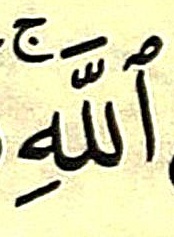 ٱللَّهِۚ